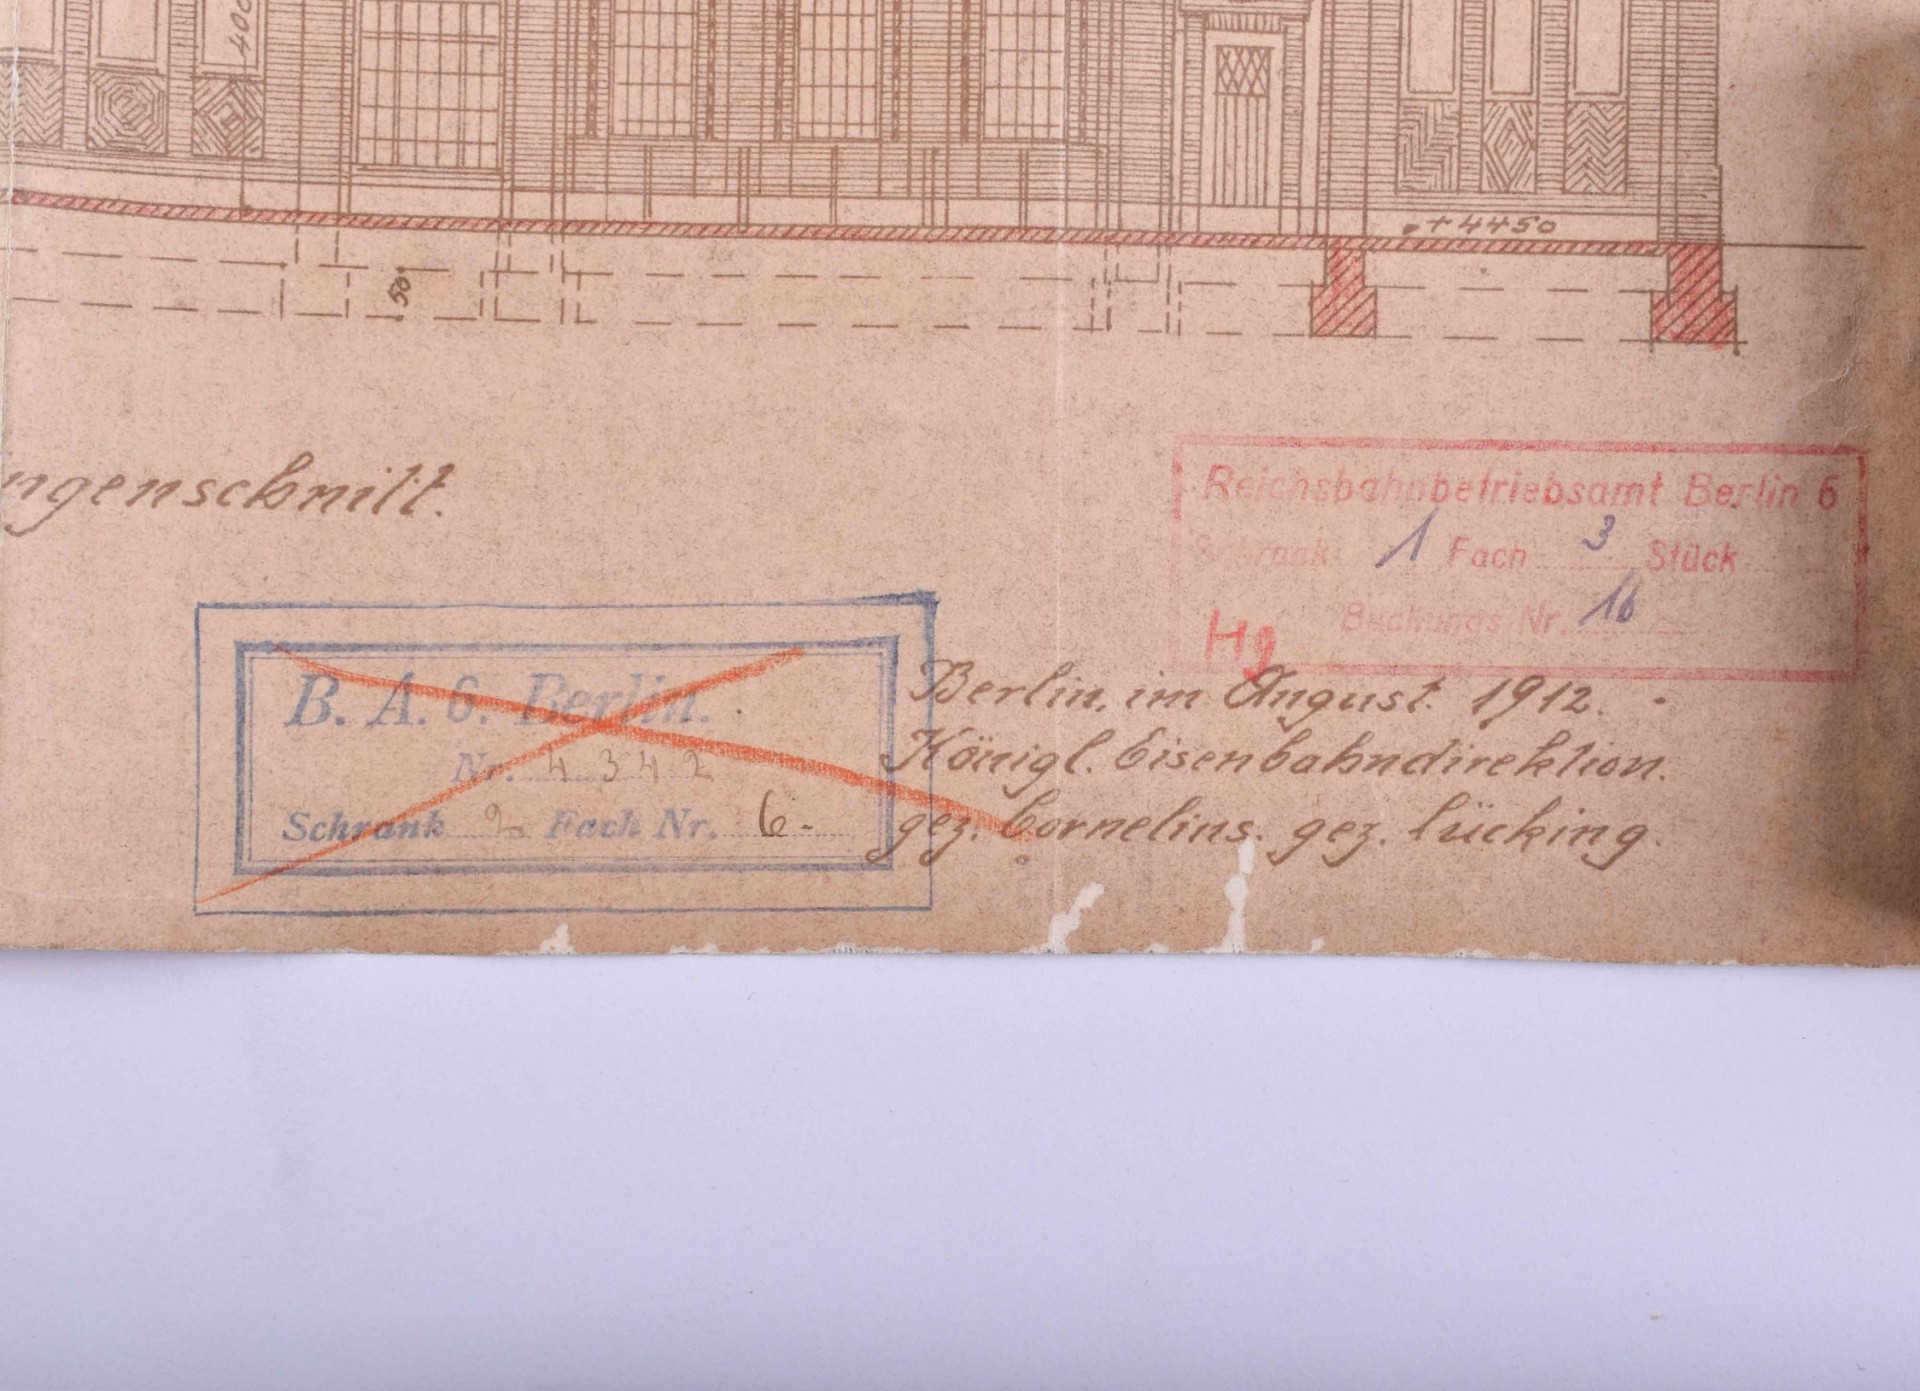 400
+4450
50
ngenschnitt.
Reichsbahnbetriebsamt Berlin 6
Schrank 1 Fach 3 Stück
Buchungs Nr. 16
Hg
B. A. 6. Berlin.
Nr. 4342
Schrank 2 Fach Nr. 6.
Berlin, im August. 1912.
Königl. Eisenbahndirektion.
gez. Cornelius. gez. Lücking.